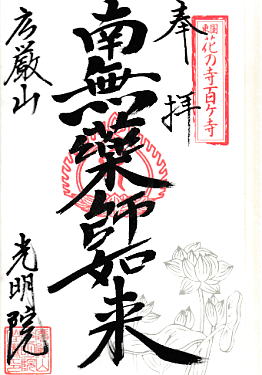 東国
花の寺百ヶ寺
奉拝
南無薬師如来
光明院